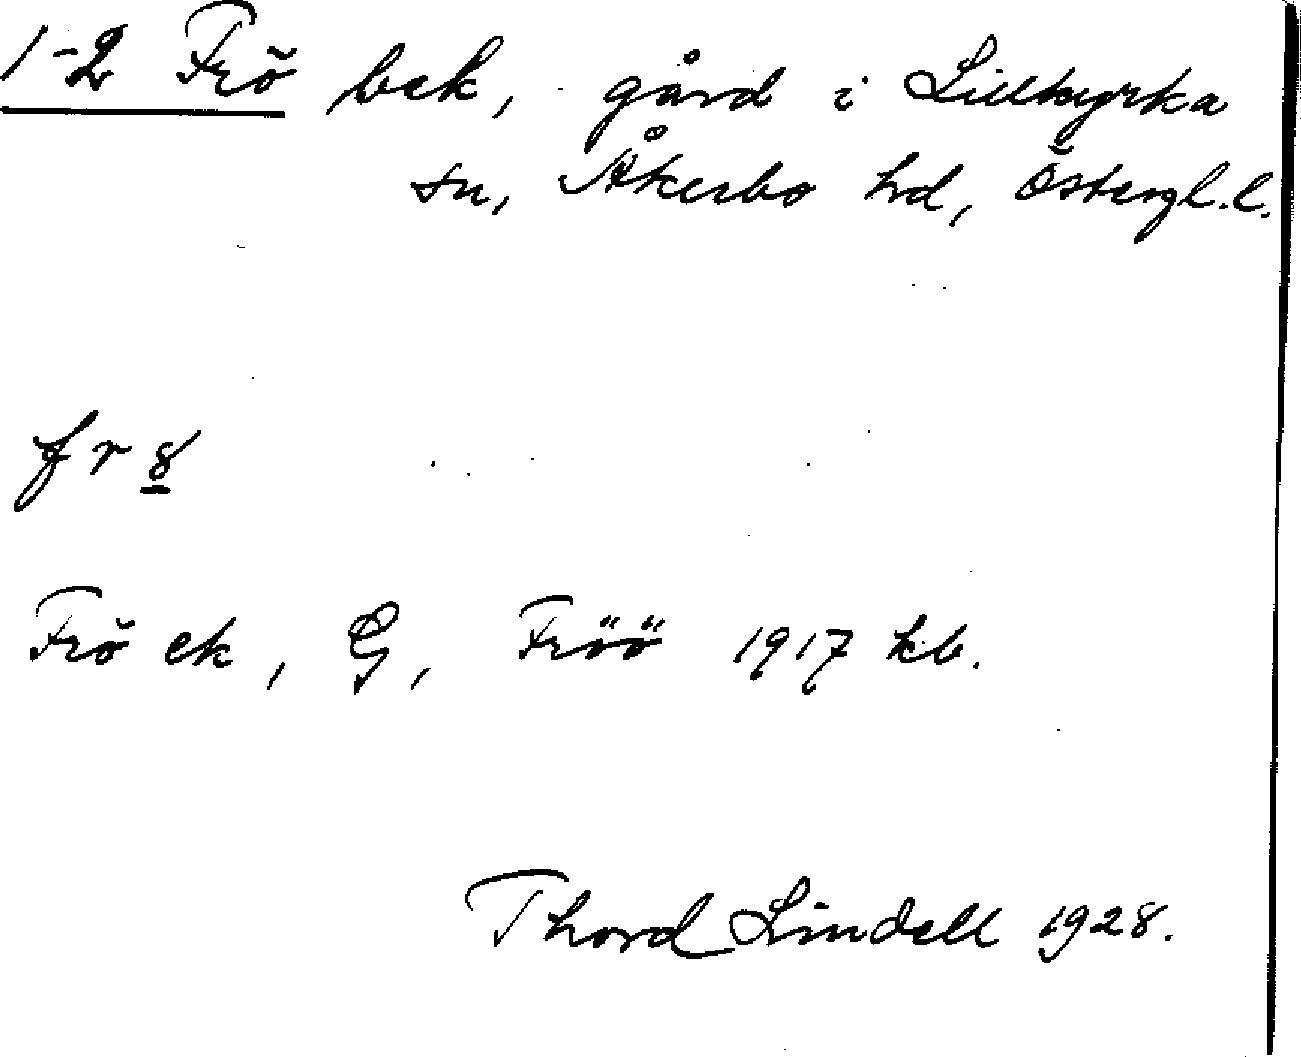 1-2 Frö bek, gård i Lillkyrka
sn, Åkerbo hd, Östergl.l.
fr8
Frö ek, G, Fröö 1917 kb.
Thord Lindell 1928.